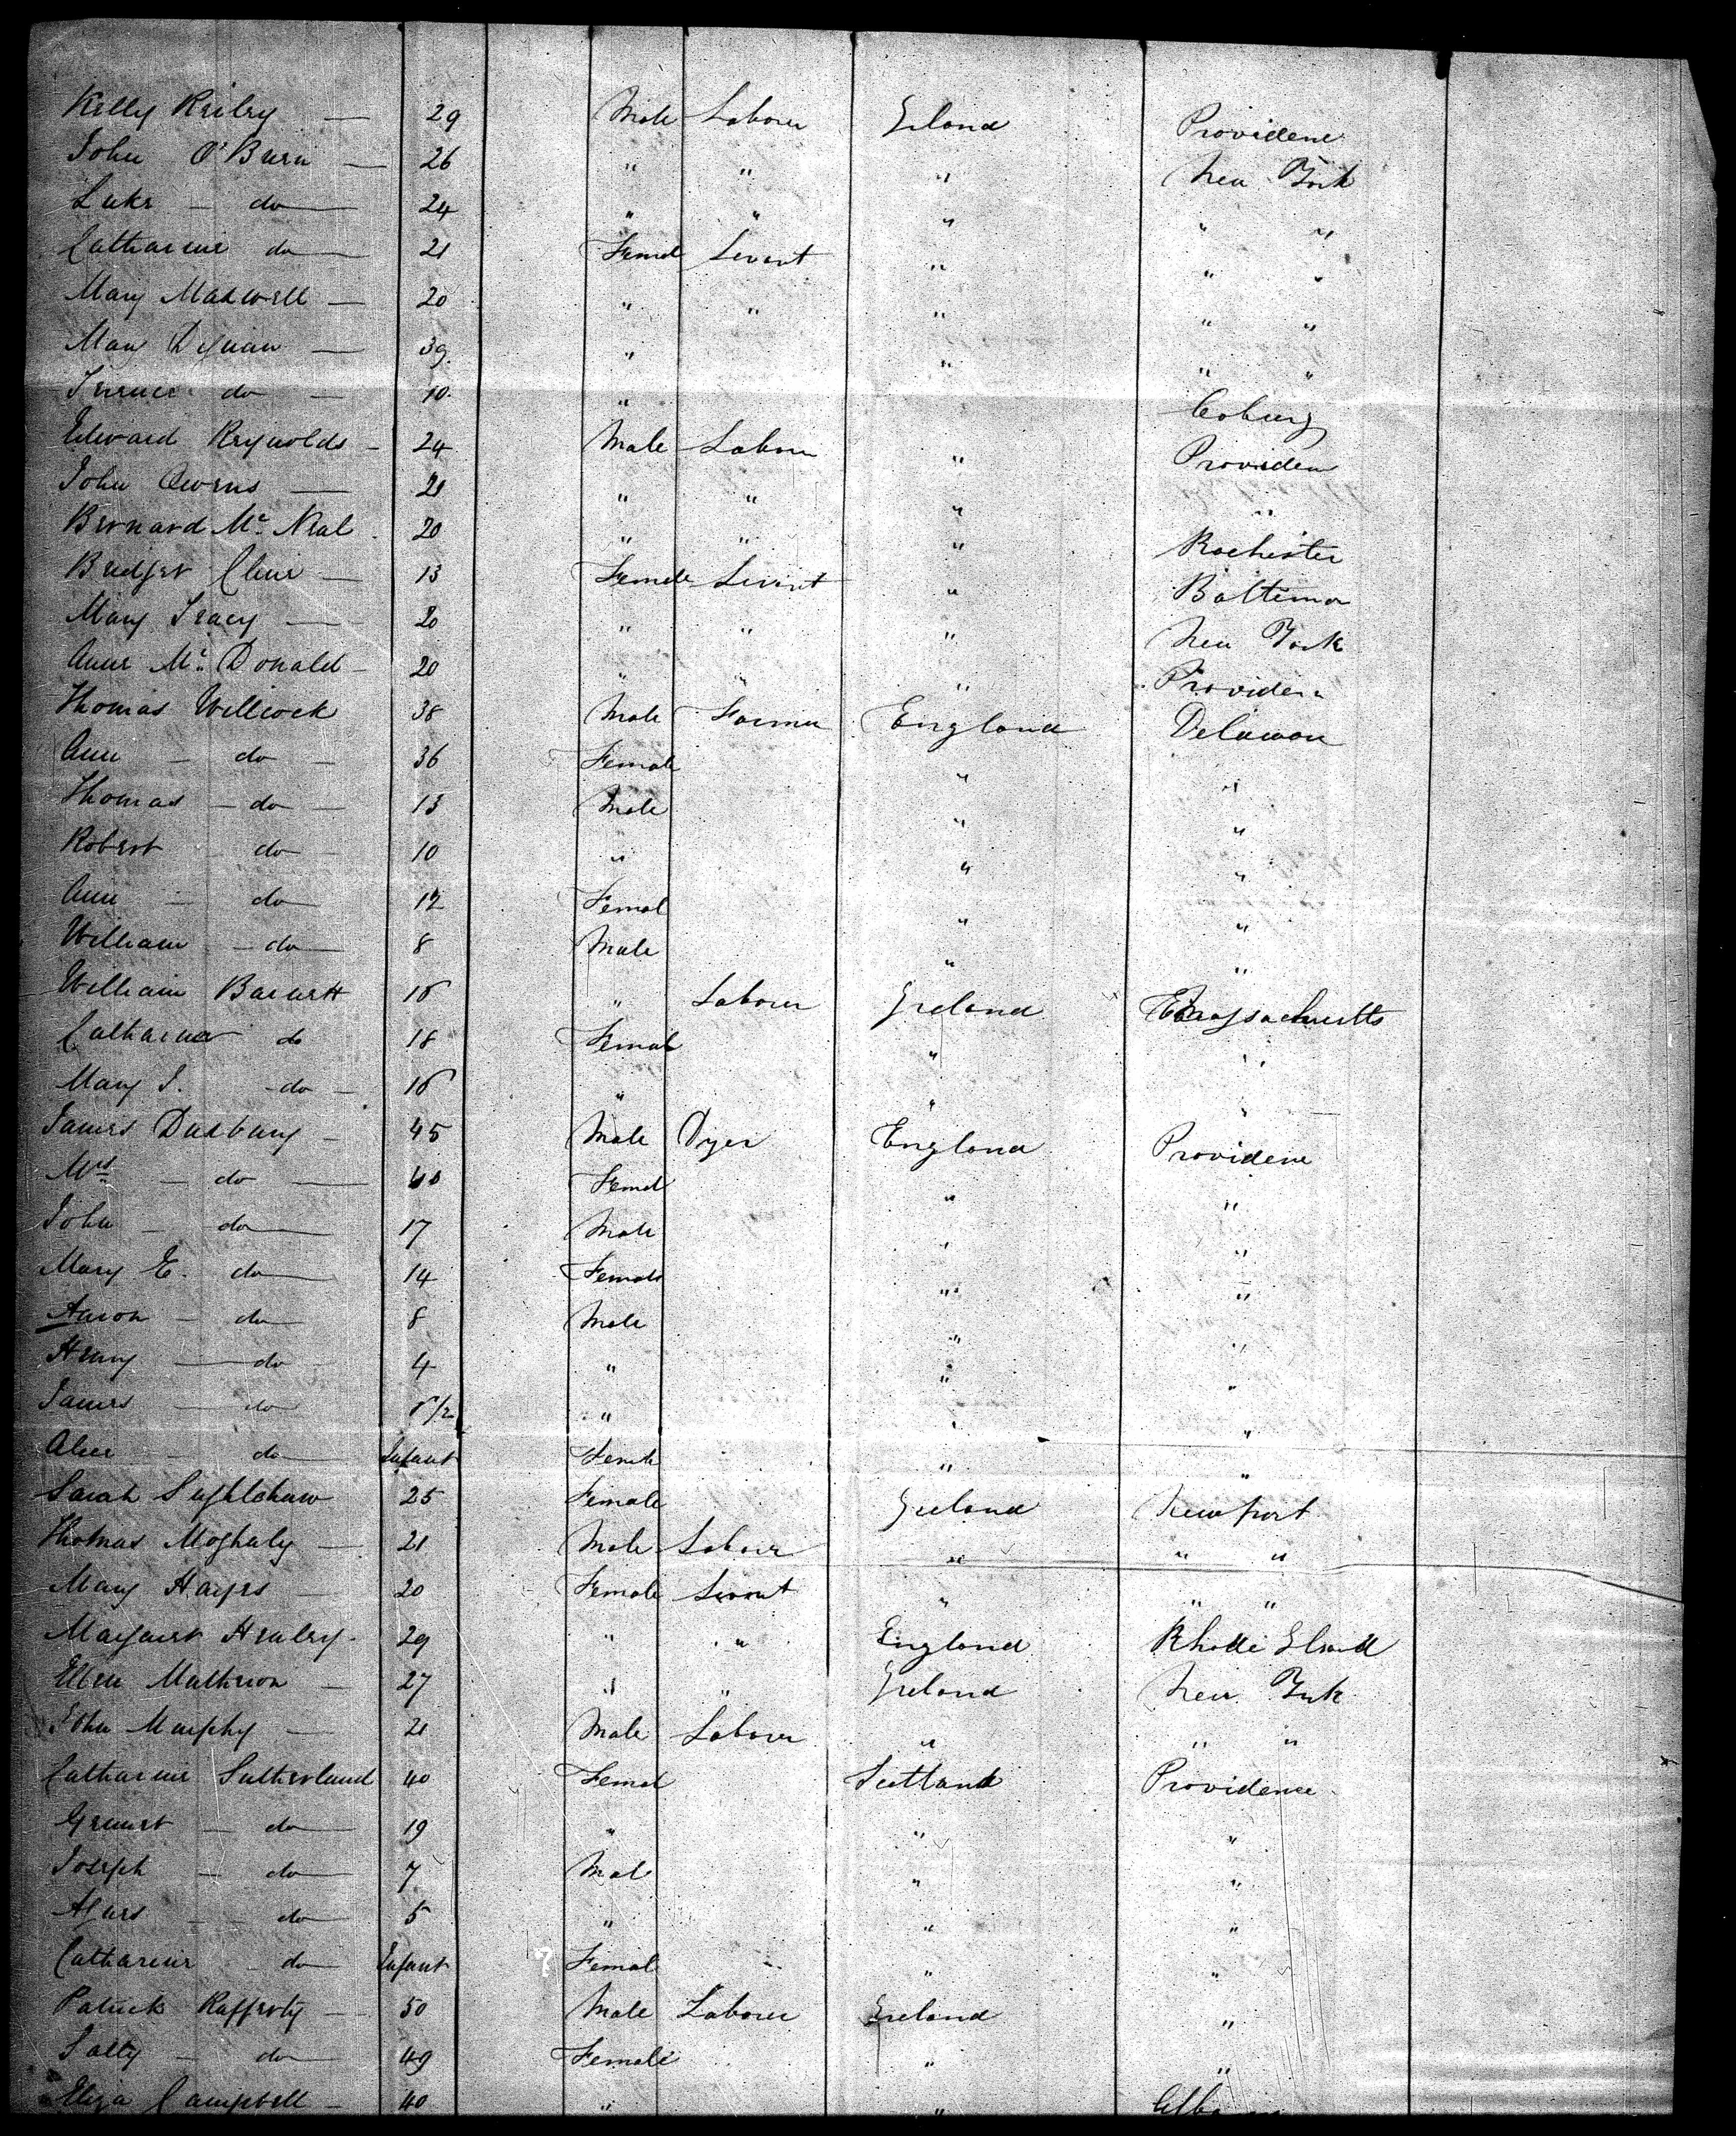 Kelly Reiley — 29 Male Labourer Ireland Providence
John O'Burn — 26 " " " New York
Luke — do — 24 " " " " "
Catharine do — 21 Femal Servant " " "
Mary Maxwell — 20 " " " " "
Mary Dignan — 39 " " " "
do — 10 " Coburg
Edward Reynolds - 24 Male Labour " Providen
John Owens — 21 " " " "
Bernard Mc Neal 20 " " " Rochester
Bridget Cline — 13 Female Servant " Baltimor
Mary Tracy — 20 " " " New York
Anne Mc Donald - 20 " " " Providen
Thomas Willcock 38 Male Farmer England Delawar
Ann — do — 36 Female " "
Thomas — do — 13 Male " "
Robert do — 10 " " "
Ann — do — 12 Femal " "
William — do — 8 Male " "
William Barrett 16 " Labourer Ireland Massachusetts
Catharine do 18 Femal " "
Mary J. do — 16 " " "
James Duxbury — 45 Male Dyer England Providence
Mrs — do — 40 Femal " "
John — do — 17 Male " "
Mary E. do — 14 Female " "
Aaron — do — 8 Male " "
Henry — do 4 " " "
James — do " " "
Alice — do — Infant Female " "
Sarah 25 Female Ireland Newport
Thomas Moghaly — 21 Male Labour " " "
Mary Hayes — 20 Female Servant " " "
Margaret Healey - 29 " " England Rhode Island
Ellen Mathewon — 27 " " Ireland New York
John Murphy — 21 Male Labour " " "
Catharine Sutherland 40 Femal Scotland Providence
— do — 19 " " "
Joseph — do — 7 Mal " "
— do — 5 " " "
Catharine - do — Infant Femal " "
Patrick Rafferty — 50 Male Labourer Ireland "
Sally — do — 49 Female " "
Eliza Campbell — 40 " "